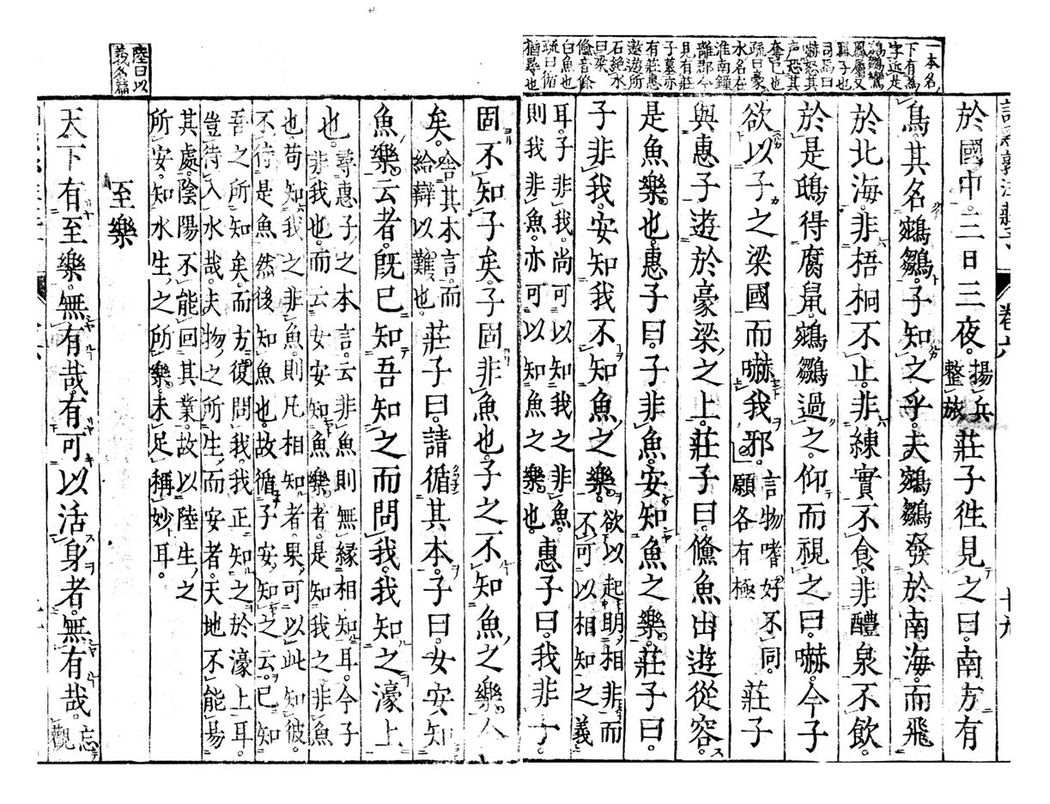 一本名
下有爲
字近是
鵷鶵鸞
鳳屬又
鳳子也
司馬曰
嚇怒其
声恐其
奪己也
疏曰濠
水名在
淮南鐘
離郡今
見有莊
子墓亦
有莊惠
遨遊所
石絶水
曰梁
鯈音條
白魚也
疏曰循
猶尋也
卷六
於國中。三日三夜。揚兵整旅莊子往見之曰。南方有
鳥。其名鵷鶵。子知之乎。夫鵷鶵發於南海。而飛
於北海。非梧桐不止。非練實不食。非醴泉不飲。
於是鴟得腐鼠。鵷鶵過之。仰而視之曰。嚇。今子
欲以子之梁國而嚇我邪。言物嗜好不同。願各有極莊子
與惠子遊於豪梁之上。莊子曰。鯈魚出遊從容。
是魚樂也。惠子曰。子非魚。安知魚之樂。莊子曰。
子非我。安知我不知魚之樂。欲以起明相非而不可以相知之義
耳。子非我。尚可以知我之非魚。則我非魚。亦可以知魚之樂也。惠子曰。我非子。
固不知子矣。子固非魚也。子之不知魚之樂全
矣。舍其本言。而給辯以難也。莊子曰。請循其本。子曰。女安知
魚樂云者。既已知吾知之而問我。我知之濠上
也。尋惠子之本言。云非魚則無縁相知耳。今子非我也。而云女安知魚樂者。是知我之非魚
也。苟知我之非魚。則凡相知者。果可以此知彼。不待是魚然後知魚也。故循子安知之云。已知
吾之所知矣。而方復問我。我正知之於濠上耳。豈待入水哉。夫物之所生而安者。天地不能易
其處。陰陽不能回其業。故以陸生之所安。知水生之所樂。未足稱妙耳。
陸曰以
義名篇
至樂
天下有至樂。無有哉。有可以活身者。無有哉。忘觀